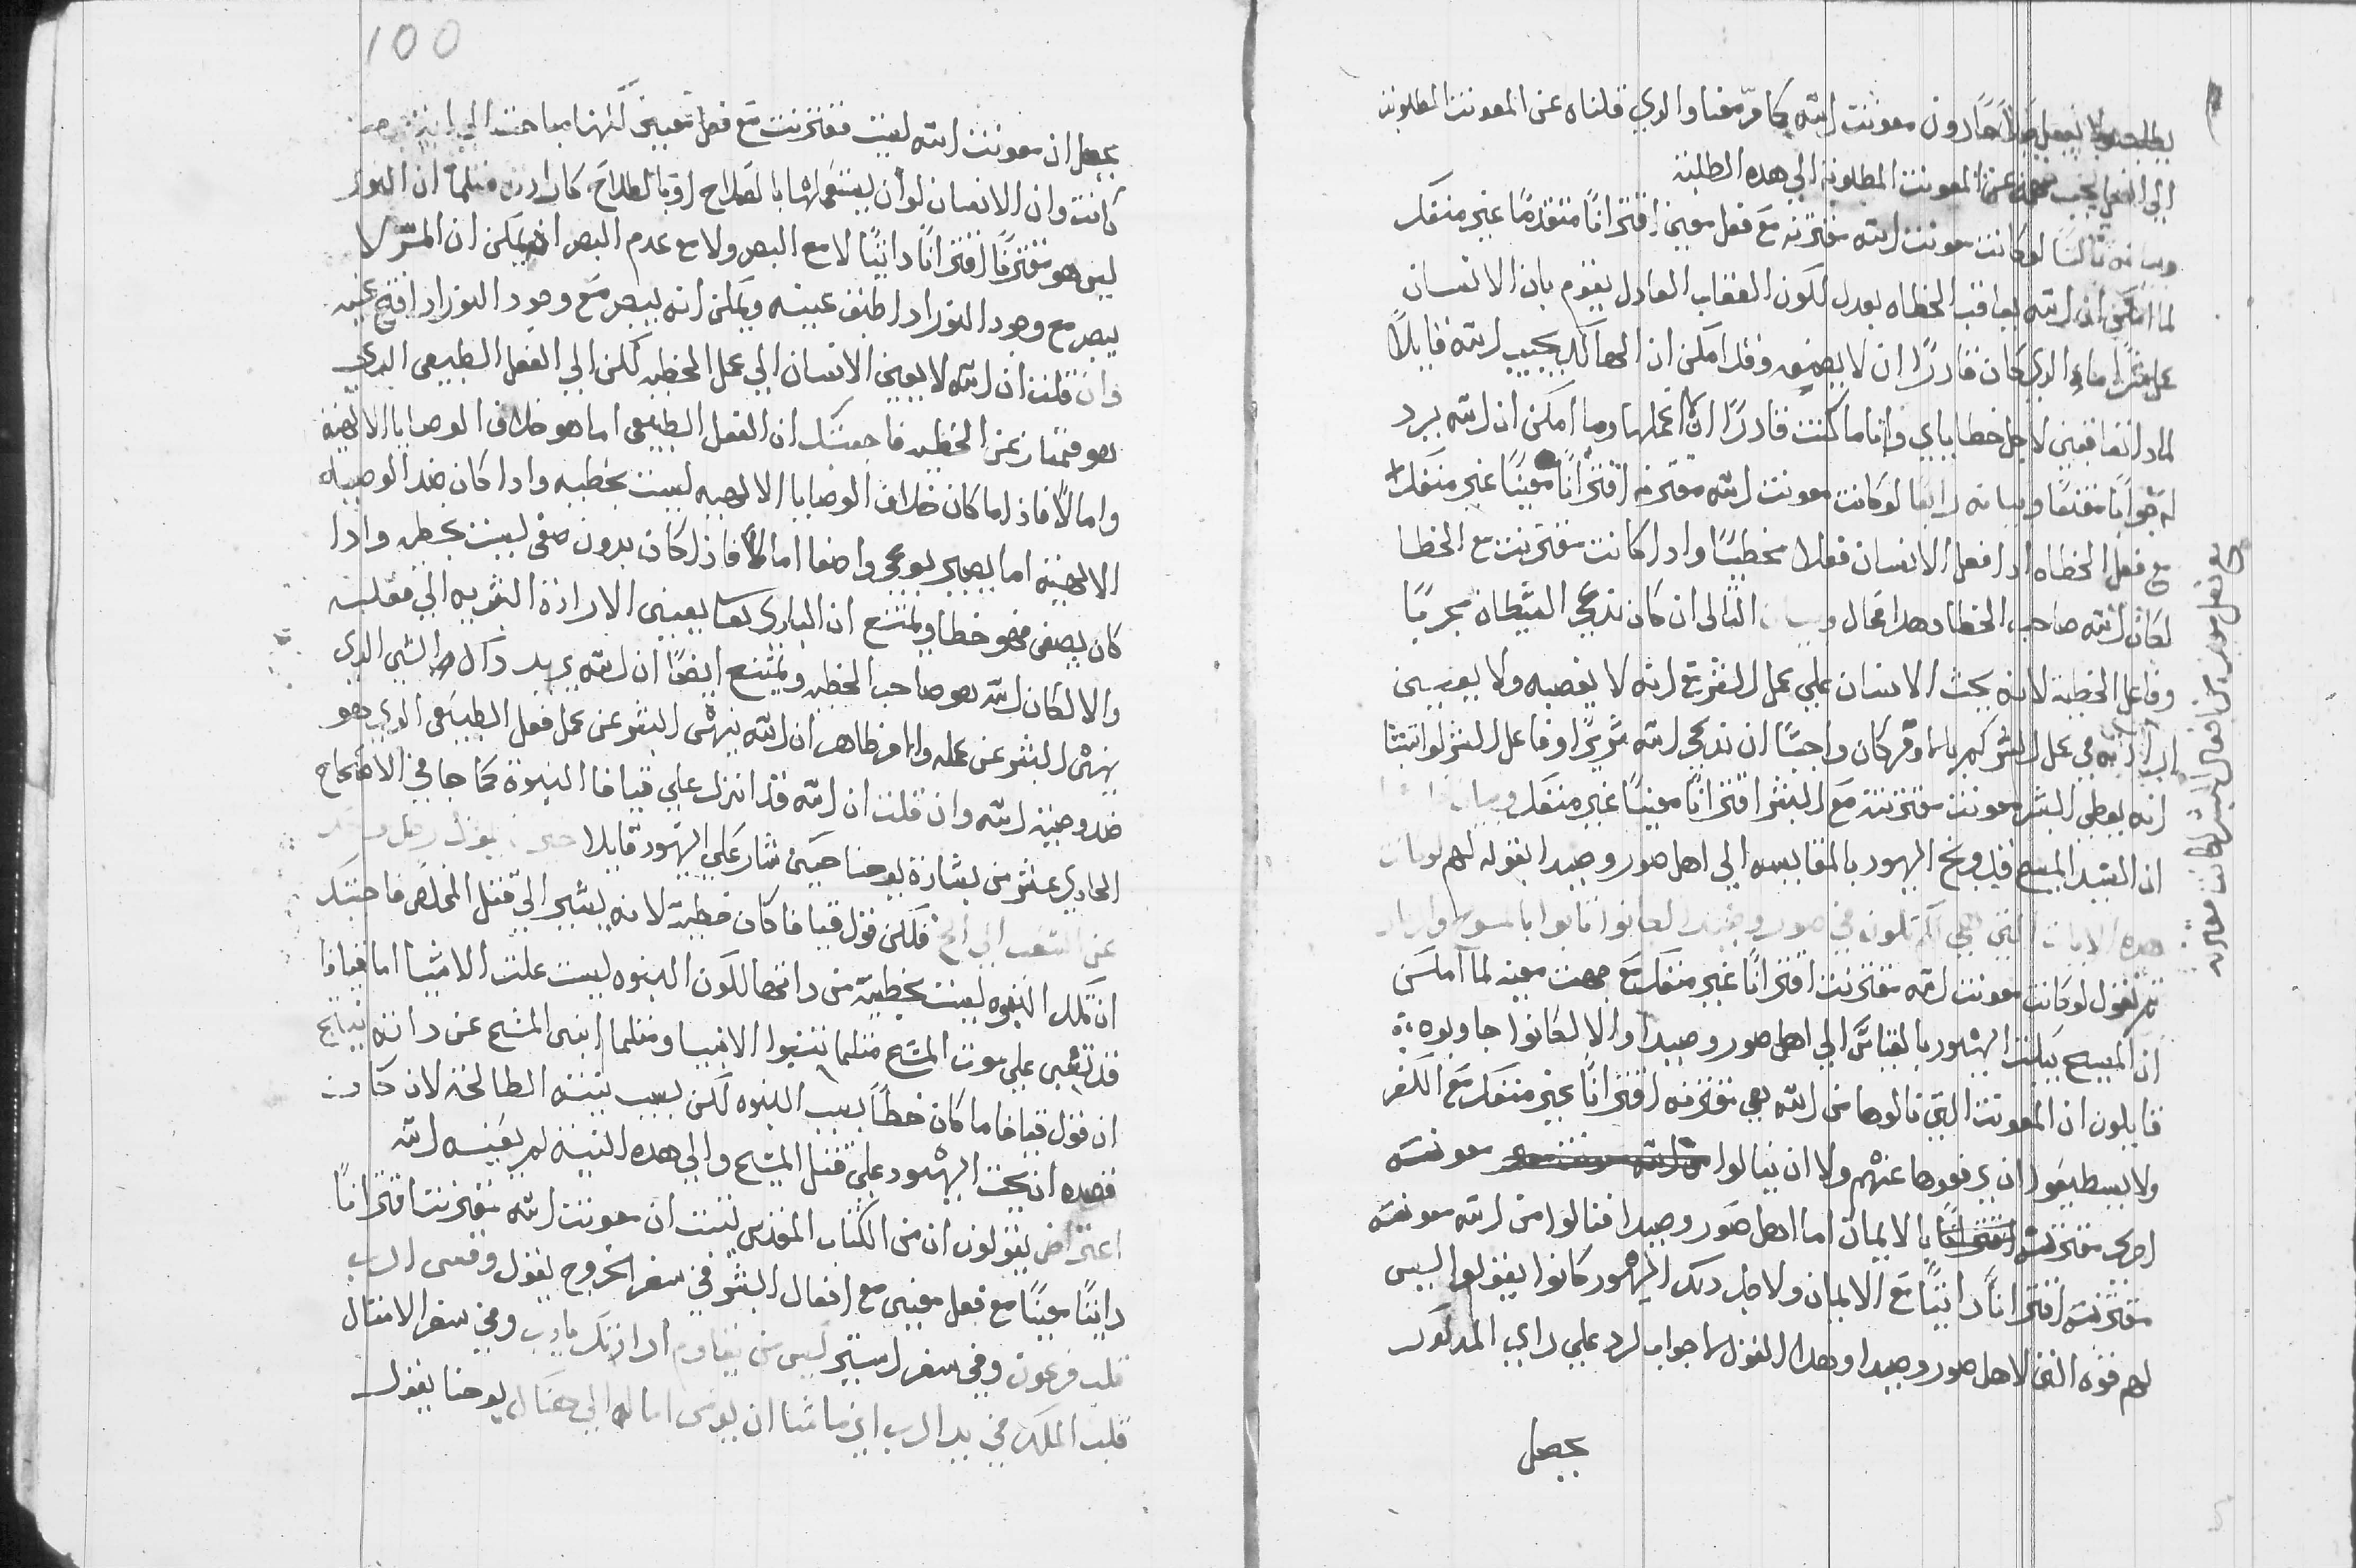 دون معونت الله كما مرّ معنا والذي قلناه عن المعونت المطلوبت
الي الخير يجب عن المعونت المطلوبه الي هده الطلبه
وبيانه ثالثًا لو كانت معونت الله مقترنه مع فعل معين اقترانًا متقدمًا غير منفك
لما امكن ان الله يعاقب الخطاه بعدل لكون العقاب العادل يقوم بان الانسان
عمل الذي كان قادرًا ان لا يصنعه وقد امكن ان الهالك يجيب الله قايلاً
لمادا تعاقبني لاجل خطاياي وانا ما كنت قادرًا ان اعملها وما امكن ان الله يرد
له جوابًا مقنعًا وبيانه رابعًا لو كانت معونت الله مقترنه اقترانًا معينًا غير منفك
مع فعل الخطاه ادا فعل الانسان فعلا مخطيًا وادا كانت مقترنت مع الخطا
لكان الله صاحب الخطا وهدا محال التالى ان كان ندعي الشيطان مجرمًا
وفاعل الخطية لانه يحث الانسان علي عمل الشر مع انه لا يغصبه ولا يعين
ارادته في عمل الشر كم كان واجبًا ان ندعي الله شريرًا وفاعل الشر لو اثبتنا
انه يعطي البشر معونت مقترنت مع الشر اقترانًا معينًا غير منفك وبيانه
ان السيد المسيح قد وبخ اليهود بالمقايسه الي اهل صور وصيدا بقوله لهم لو كانت
هده الايات التي في صور وصيدا لكانوا تابوا بالمسوح والرماد
ثم نقول لو كانت معونت الله مقترنت اقترانًا غير منفك مع جهت معينه لما امكن
ان المسيح يبكت اليهود بالقياس الي اهل صور وصيدا والا لكانوا جاوبوه
قايلون ان المعونت التي نالوها من الله هي مقترنه اقترانًا غير منفك مع الكفر
ولا يستطيعوا ان يرفعوها عنهم ولا ان ينالوا معونت
اخري مقترنت بالايمان اما اهل صور وصيدا فنالوا من الله معونت
مقترنت اقترانًا داتيًا مع الايمان ولاجل دلك اليهود كانوا يقولوا ليس
لهم قوة التي لاهل صور وصيدا وهدا القول جوابا لرد علي راي المدكور
يحصل
مع فعل معين من افعال البشر لكانت مقترنه
100
يحصل ان معونت الله ليست مقترنت مع فعل معين لكنها
كانت وان الانسان لو ان يستعملها بالصلاح او بالطلاح كارادته مثلما ان النور
ليس هو مقترنًا اقترانًا داتيًا لا مع البصر ولا مع عدم البصر اد يمكن ان المرء لا
يبصر مع وجود النور ادا طبق عينيه ويمكن انه يبصر مع وجود النور ادا فتح عينيه
وان قلت ان الله لا يعين الانسان الي عمل الخطيه لكن الي الفعل الطبيعى الدي
هو ممتاز عن الخطيه فاجبتك ان الفعل الطبيعى اما هو خلاف الوصايا الالهيه
واما لا فاذا ما كان خلاف الوصايا الالهيه ليست بخطيه وادا كان ضد الوصيه
الالهيه اما يصير بوعي واصغا اما لا فاذا كان بدون صغى ليست بخطيه وادا
كان بصغى فهو خطا ويمتنع ان البارى تعا يعين الارادة البشريه الي فعله
والا لكان الله هو صاحب الخطيه ويمتنع ايضًا ان الله يريد داك الشي الدي
ينهى البشر عن عمله وامر ظاهر ان الله ينهى البشر عن عمل فعل الطبيعى الدي هو
ضد وصية الله وان قلت ان الله قد انزل علي قيافا النبوة كما جا في الاصحاح
الحادي عشر من بشارة يوحنا حين شار علي اليهود قايلا يموت رجل واحد
عن الشعب الي الخ فلكن قول قيافا كان خطية لانه يشير الي قتل المخلص فاجبتك
ان تلك النبوه ليست بخطيه من داتها لكون النبوه ليست علت الاشيا اما قيافا
قد تنبى علي موت المسيح مثلما تنبوا الانبيا ومثلما انبى المسيح عن داته
ان قول قيافا ما كان خطأ بسبب النبوه لكن بسبب نيته الطالحه لان كان
قصده ان يحث اليهود علي قتل المسيح والي هده النية لم يعينه الله
اعتراض يقولون ان من الكتاب المقدس تثبت ان معونت الله مقترنت اقترانًا
داتيًا معينًا مع فعل معين مع افعال البشر في سفر الخروج يقول وقسى الرب
قلب فرعون وفي سفر استير ليس من يقاوم ارادتك يارب وفي سفر الامثال
قلب الملك في يد الرب اين ما شا ان يوحنا يقول